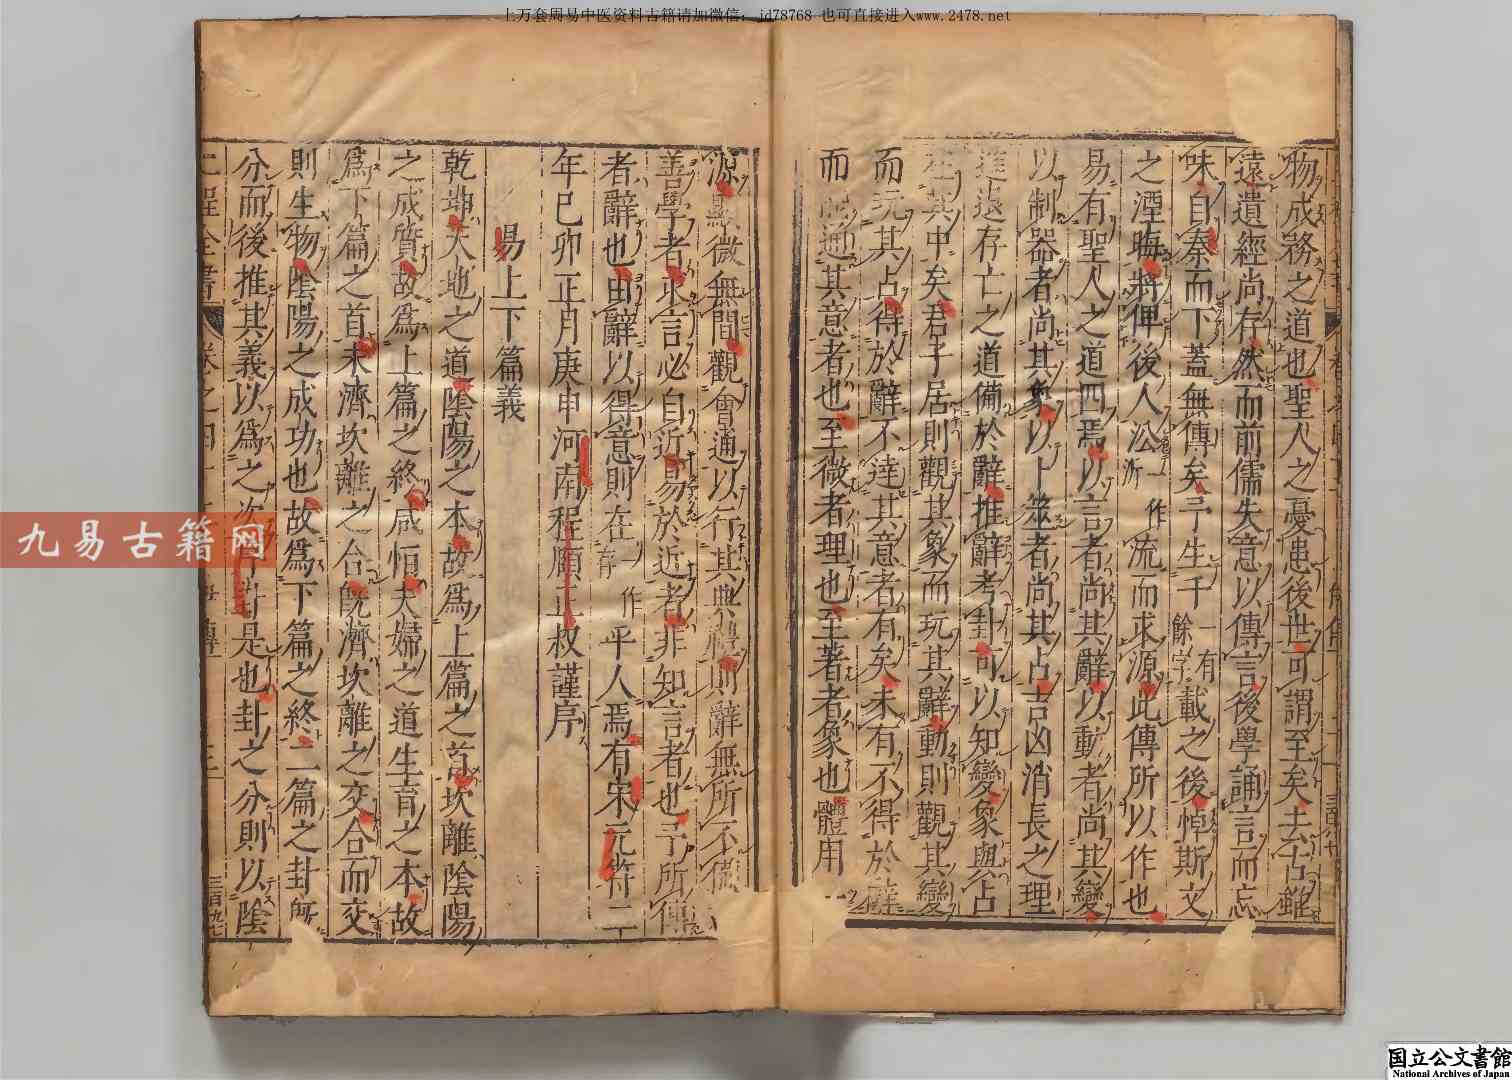 上万套周易中医资料古籍请加微信: jd78768 也可直接进入www.2478.net
物成務之道也聖人之憂患後世可謂至矣去古雖
遠遺經尚存然而前儒失意以傳言後學誦言而忘
味自秦而下蓋無傳矣予生千餘字一有載之後悼斯文
之湮晦將俾後人㳂一作沂流而求源此傳所以作也
易有聖人之道四焉以言者尚其辭以動者尚其變
以制器者尚其象以卜筮者尚其占吉凶消長之理
進退存亡之道備於辭推辭考卦可以知變象與占
在其中矣君子居則觀其象而玩其辭動則觀其變
而玩其占得於辭不達其意者有矣未有不得於辭
而能通其意者也至微者理也至著者象也體用
源顯微無間觀會通以行其典禮則辭無所不備
善學者求言必自近易於近者非知言者也予所傳
者辭也由辭以得意則在一作存乎人焉有宋元符二
年己卯正月庚申河南程頤正叔謹序
易上下篇義
乾坤天地之道陰陽之本故為上篇之首坎離陰陽
之成質故為上篇之終咸恒夫婦之道生育之本故
為下篇之首未濟坎離之合旣濟坎離之交合而交
則生物陰陽之成功也故為下篇之終二篇之卦旣
分而後推其義以為之次序卦是也卦之分則以陰
二程全書 卷之四十
九易古籍网
国立公文書館
National Archives of Japan